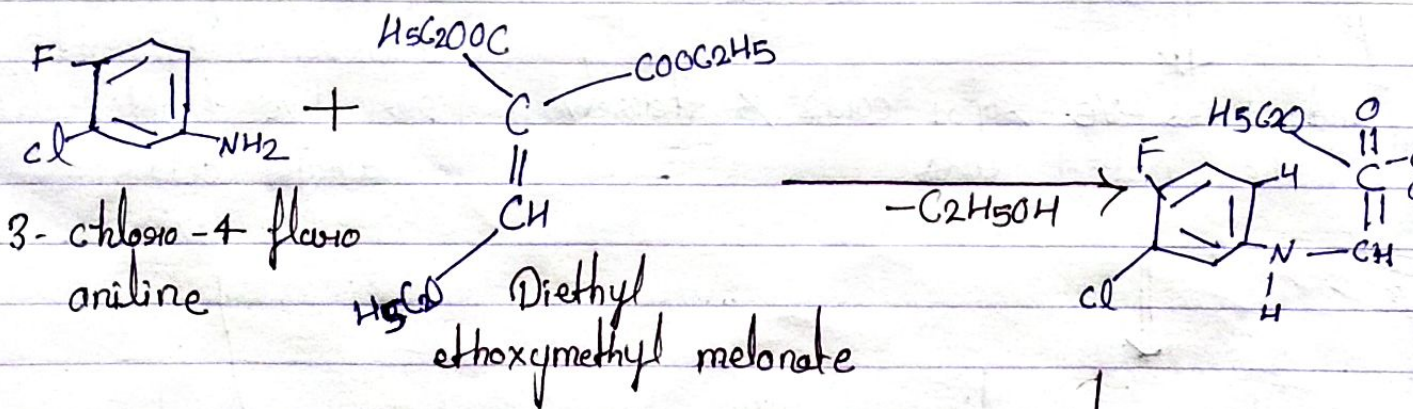 F
Cl
NH2
+
H5C2OOC
COOC2H5
C
||
CH
H5C2O
3- chloro-4 fluro
aniline
Diethyl
ethoxymethyl melonate
-C2H5OH
H5C2O
O
||
C
||
F
H
Cl
N
CH
H